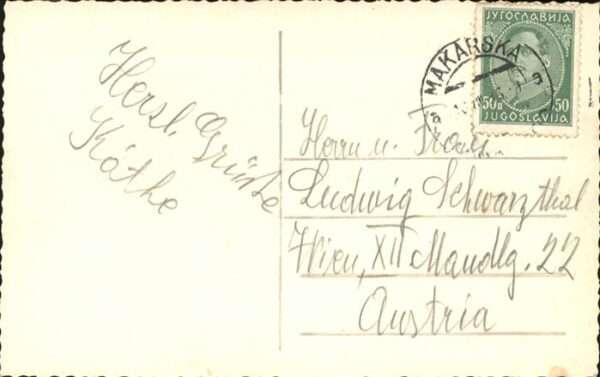 Herzl. Grüße
Käthe
ЈУГОСЛАВИЈА
MAKARSKA
50 50
JUGOSLAVIJA
Herrn u. Frau
Ludwig Schwarzthal
Wien, XII Mandlg. 22
Austria